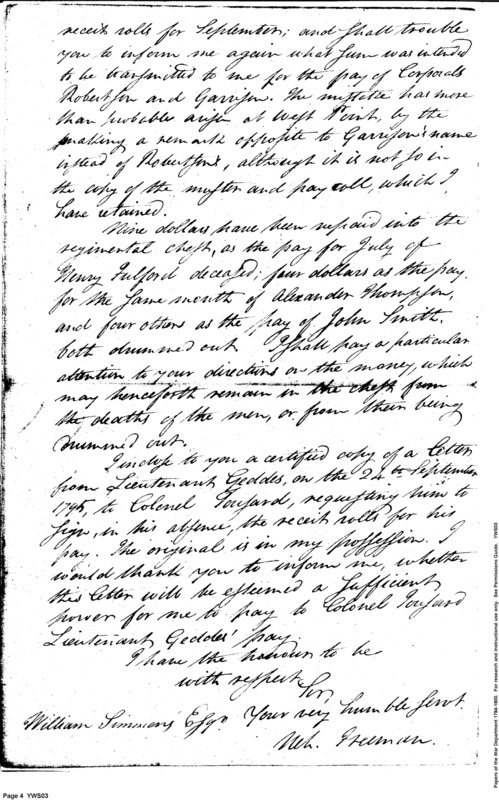 receit rolls for September; and shall trouble
you to inform me again what sum was intended
to be transmitted to me for the pay of Corporals
Robertson and Garrison. The mistake has more
than probable arisen at West Point, by the
making a remark opposite to Garrison's name
instead of Robertson's, although it is not so in
the copy of the muster and pay roll, which I
have retained.
Nine dollars have been repaid into the
regimental chest, as the pay for July of
Henry Fulford deceased; four dollars as the pay
for the same month of Alexander Thompson,
and four others as the pay of John Smith,
both drummed out. I shall pay a particular
attention to your directions on the money, which
may henceforth remain in the chest from
the deaths of the men, or from their being
drummed out.
I inclose to you a certified copy of a letter
from Lieutenant Geddes, on the 24th September
1795, to Colonel Tousard, requesting him to
sign, in his absence, the receit rolls for his
pay. The original is in my possession. I
would thank you to inform me, whether
this letter will be esteemed a sufficient
power for me to pay to Colonel Tousard
Lieutenant Geddes' pay
I have the honour to be
with respect
Sir,
William Simmons Esqr. Your very humble servt.
Neh. Freeman.
Page 4 YWS03
Papers of the War Department 1784-1800. For research and instructional use only. See Permissions Guide. YWS03